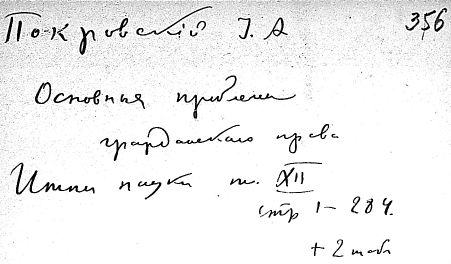 Покровскій І. А 356
Основныя проблемы
гражданскаго права
Итоги науки т. XII
стр 1–284.
+ 2 табл